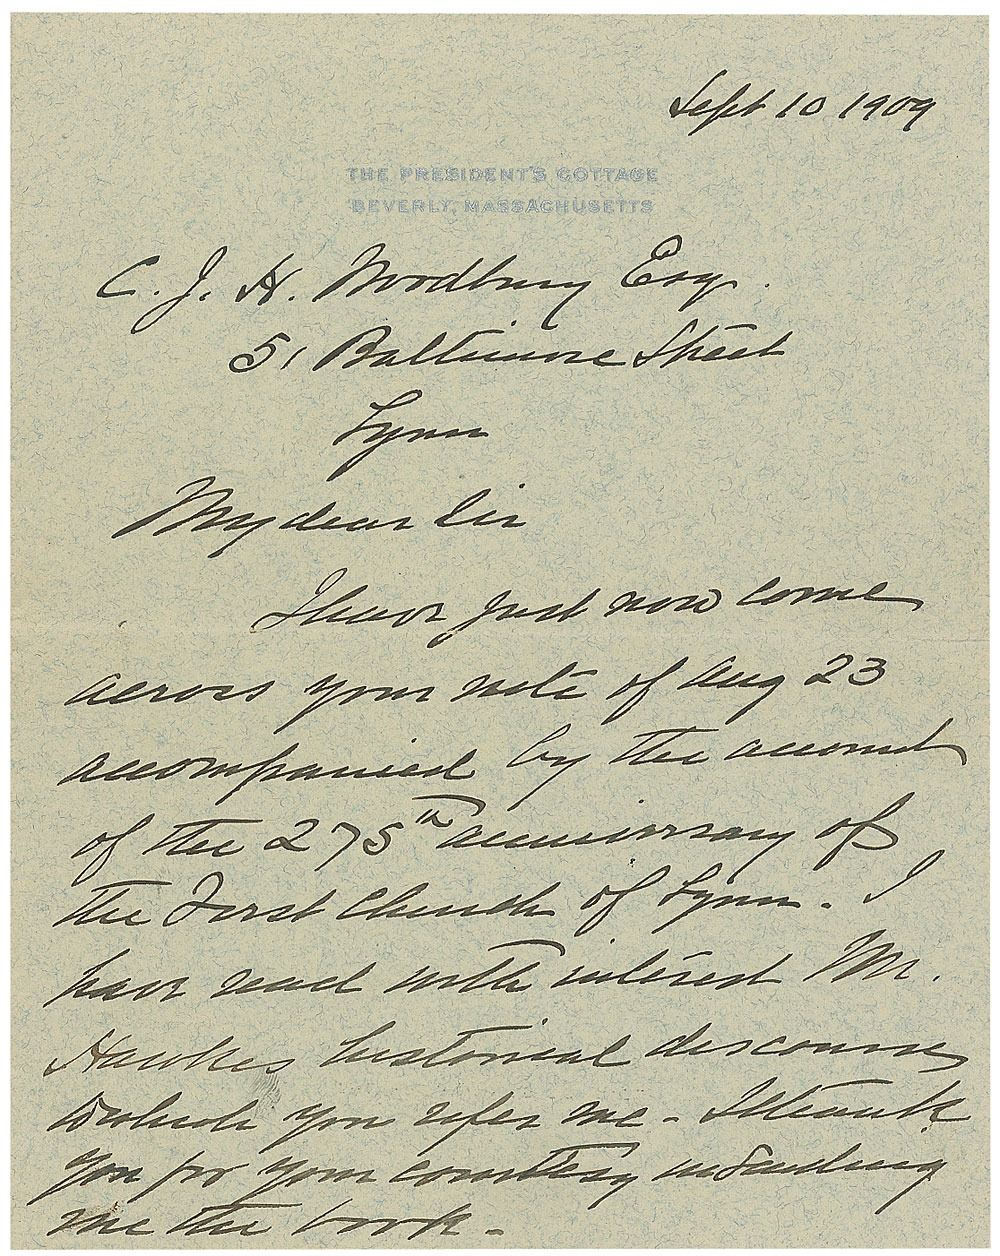 Sept 10 1909
THE PRESIDENT'S COTTAGE
BEVERLY, MASSACHUSETTS
C. J. H. Woodbury Esq.
51 Baltimore Street
Lynn
My dear Sir
I have just now come
across your note of Aug 23
accompanied by the account
of the 275th anniversary of
the First Church of Lynn. I
have read with interest Mr.
Hawkes historical discourse
to which you refer me - I thank
you for your courtesy in sending
me the book.